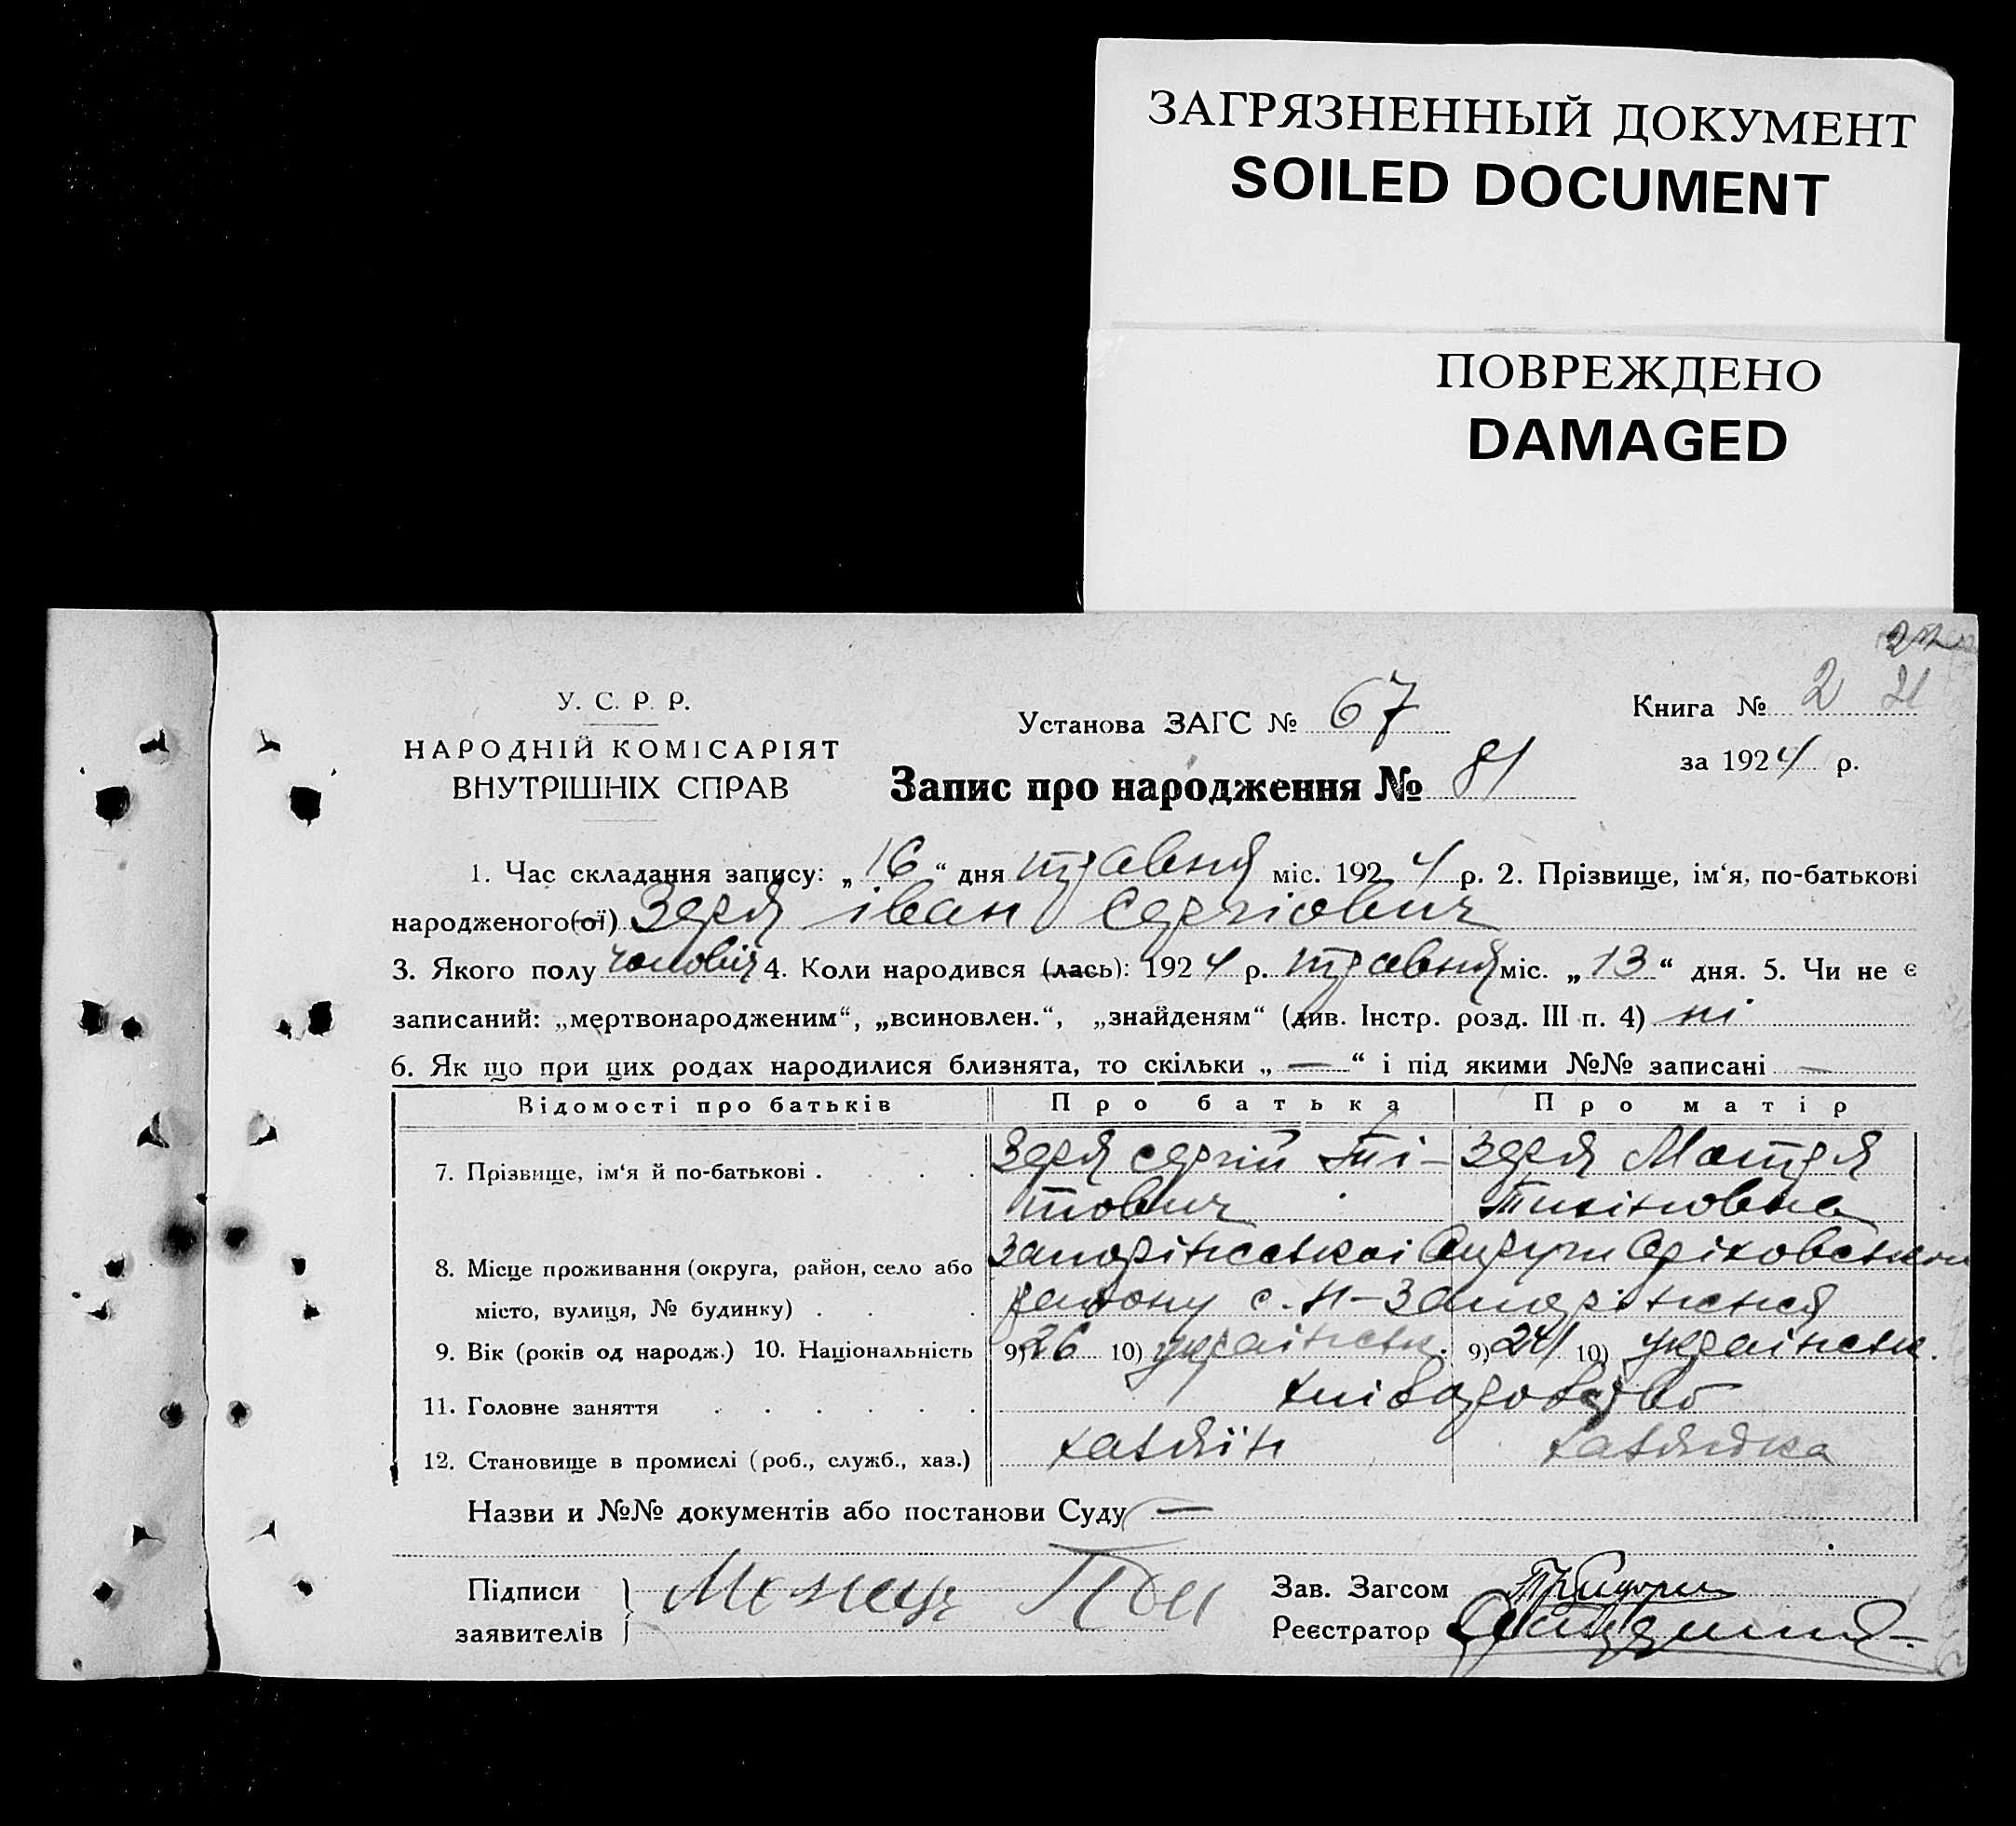 ЗАГРЯЗНЕННЫЙ ДОКУМЕНТ
SOILED DOCUMENT
ПОВРЕЖДЕНО
DAMAGED
У. С. Р. Р.
НАРОДНІЙ КОМІСАРІЯТ
ВНУТРІШНІХ СПРАВ
Установа ЗАГС № 67
Книга № 2 21
за 1924 р.
Запис про народження № 81
1. Час складання запису: „16“ дня травня міс. 1924 р. 2. Прізвище, ім‘я, по-батькові
народженого(ої) Зеря іван Сергіович
3. Якого полу чоловіч 4. Коли народився (лась): 1924 р. травня міс. „13“ дня. 5. Чи не є
записаний: „мертвонародженим“, „всиновлен.“, „знайденям“ (див. Інстр. розд. III п. 4) ні
6. Як що при цих родах народилися близнята, то скільки „—“ і під якими №№ записані —
Відомості про батьків Про батька Про матір
7. Прізвище, ім‘я й по-батькові . . . . Зеря сергій Ті- Зеря Мотря
тович
8. Місце проживання (округа, район, село або Запоріжської Округи Оріховського
місто, вулиця, № будинку) . . . району с. Н-Запоріжжя
9. Вік (років од народж.) 10. Національність 9) 26 10) українськ. 9) 24 10) українськ.
11. Головне заняття . . . . . . хліборобство
12. Становище в промислі (роб., служб., хаз.) хазяїн хазяйка
Назви и №№ документів або постанови Суду —
Підписи
заявителів
Зав. Загсом
Реєстратор